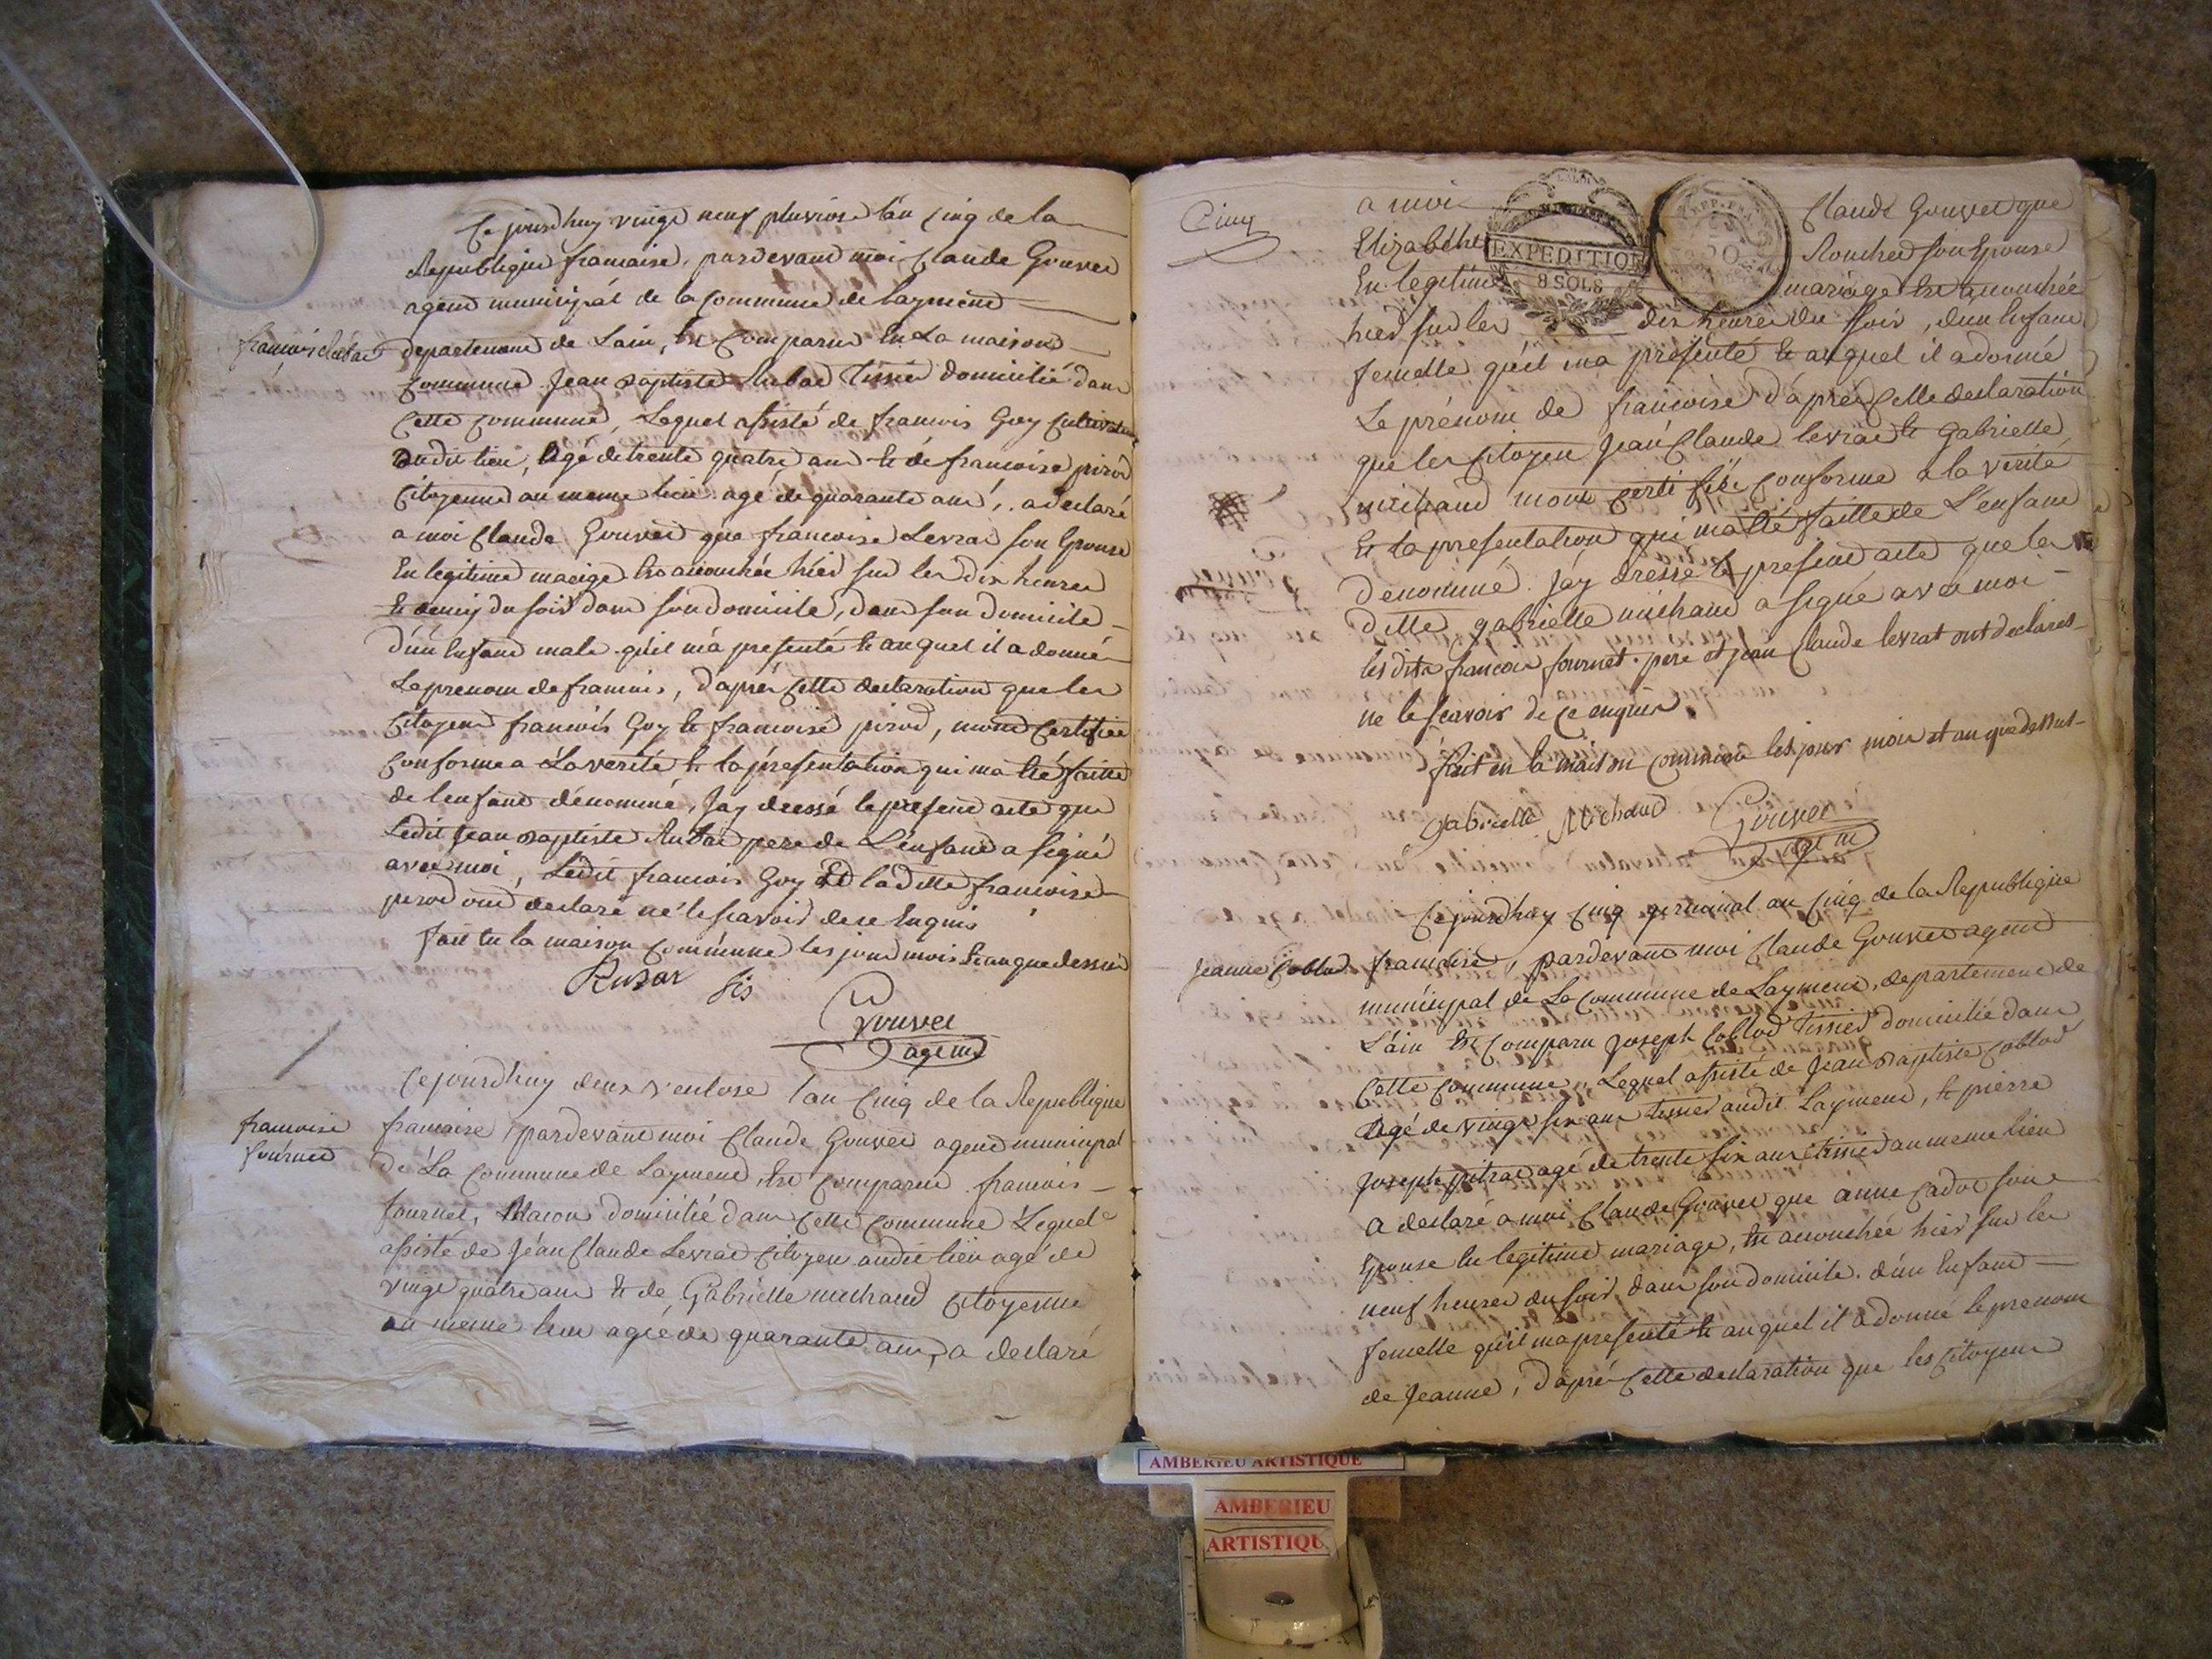 Ce jourdhuy vingt neuf pluviose l'an Cinq de la
Republique francaise, pardevant moi Claude Gouvet
agent municipal de la Commune de Layment
francois Rubat
departement de Lain, Est Comparu En La maison
Commune Jean Baptiste Rubat tissier domicilié dans
Cette Commune, Lequel assisté de francois Goy Cultivateur
audit lieu, agé de trente quatre ans Et de francoise pirod
Citoyenne au meme lieu agé de quarante ans, a declaré
a moi Claude Gouvet que francoise Levrat son Epouse
En legitime mariage Est acouchée hier sur les dix heures
Et demy du soir dans son domicile, dans son domicile
d'un Enfant male qu'il m'a presenté Et auquel il a donné
Le prenom de francois, d'aprés Cette declaration que les
Citoyens francois Goy Et francoise pirod, m'ont Certifiée
Conforme a La verité, Et la présentation qui m'a Eté faitte
de l'enfant dénommé, J'ay dressé le present acte que
Ledit Jean Baptiste Rubat pere de L'enfant a signé
avec moi, Ledit francois Goy Et laditte francoise
pirod ont declaré ne le scavoir de ce Enquis
fait En la maison Commune les jour mois Et an que dessus
Rubat fis
Gouvet
agent
Ce jourdhuy deux ventose l'an Cinq de la Republique
francoise
fournet
francaise, pardevant moi Claude Gouvet agent municipal
de La Commune de Layment, Est Comparu francois
fournet, Macon domicilié dans Cette Commune Lequel
assisté de Jean Claude Levrat Citoyen audit lieu agé de
vingt quatre ans Et de Gabrielle michaud Citoyenne
au meme lieu agée de quarante ans, a declaré
Cinq
a moi Claude Gouvet que
Elizabeth Rouched son Epouse
En legitime mariage Est acouchée
EXPEDITION
8 SOLS
REP. FRA
hier sur les dix heures du soir, d'un Enfant
femelle qu'il m'a presenté Et auquel il a donné
Le prénom de francoise d'aprés Cette declaration
que les Citoyen Jean Claude levrat Et Gabrielle
michaud m'ont certifiée Conforme a la verité
Et la presentation qui m'a Eté faitte de L'enfant
denommé J'ay dressé le present acte que la
ditte gabrielle michaud a signé avec moi
les dits francois fournet pere et jean Claude levrat ont declarés
ne le scavoir de ce enquis
fait en la maison commune les jour mois et an que dessus
Gabrielle Michaud Gouvet
agent
Ce jourdhuy Cinq germinal an Cinq de la Republique
Jeanne Coblod
francaise, pardevant moi Claude Gouvet agent
municipal de La Commune de Layment, departement de
L'ain Est Comparu Joseph Coblod tissier domicilié dans
Cette Commune, Lequel assisté de Jean Baptiste Coblod
agé de vingt six ans tissier audit Layment, Et pierre
Joseph pitrat agé de trente six ans tissier au meme lieu
a declaré a moi Claude Gouvet que anne Cadot son
Epouse En legitime mariage, Est acouchée hier sur les
neuf heures du soir, dans son domicile, d'un Enfant
femelle qu'il m'a presenté Et auquel il a donné le prenom
de Jeanne, d'aprés Cette declaration que les Citoyens
AMBERIEU ARTISTIQUE
AMBERIEU
ARTISTIQU